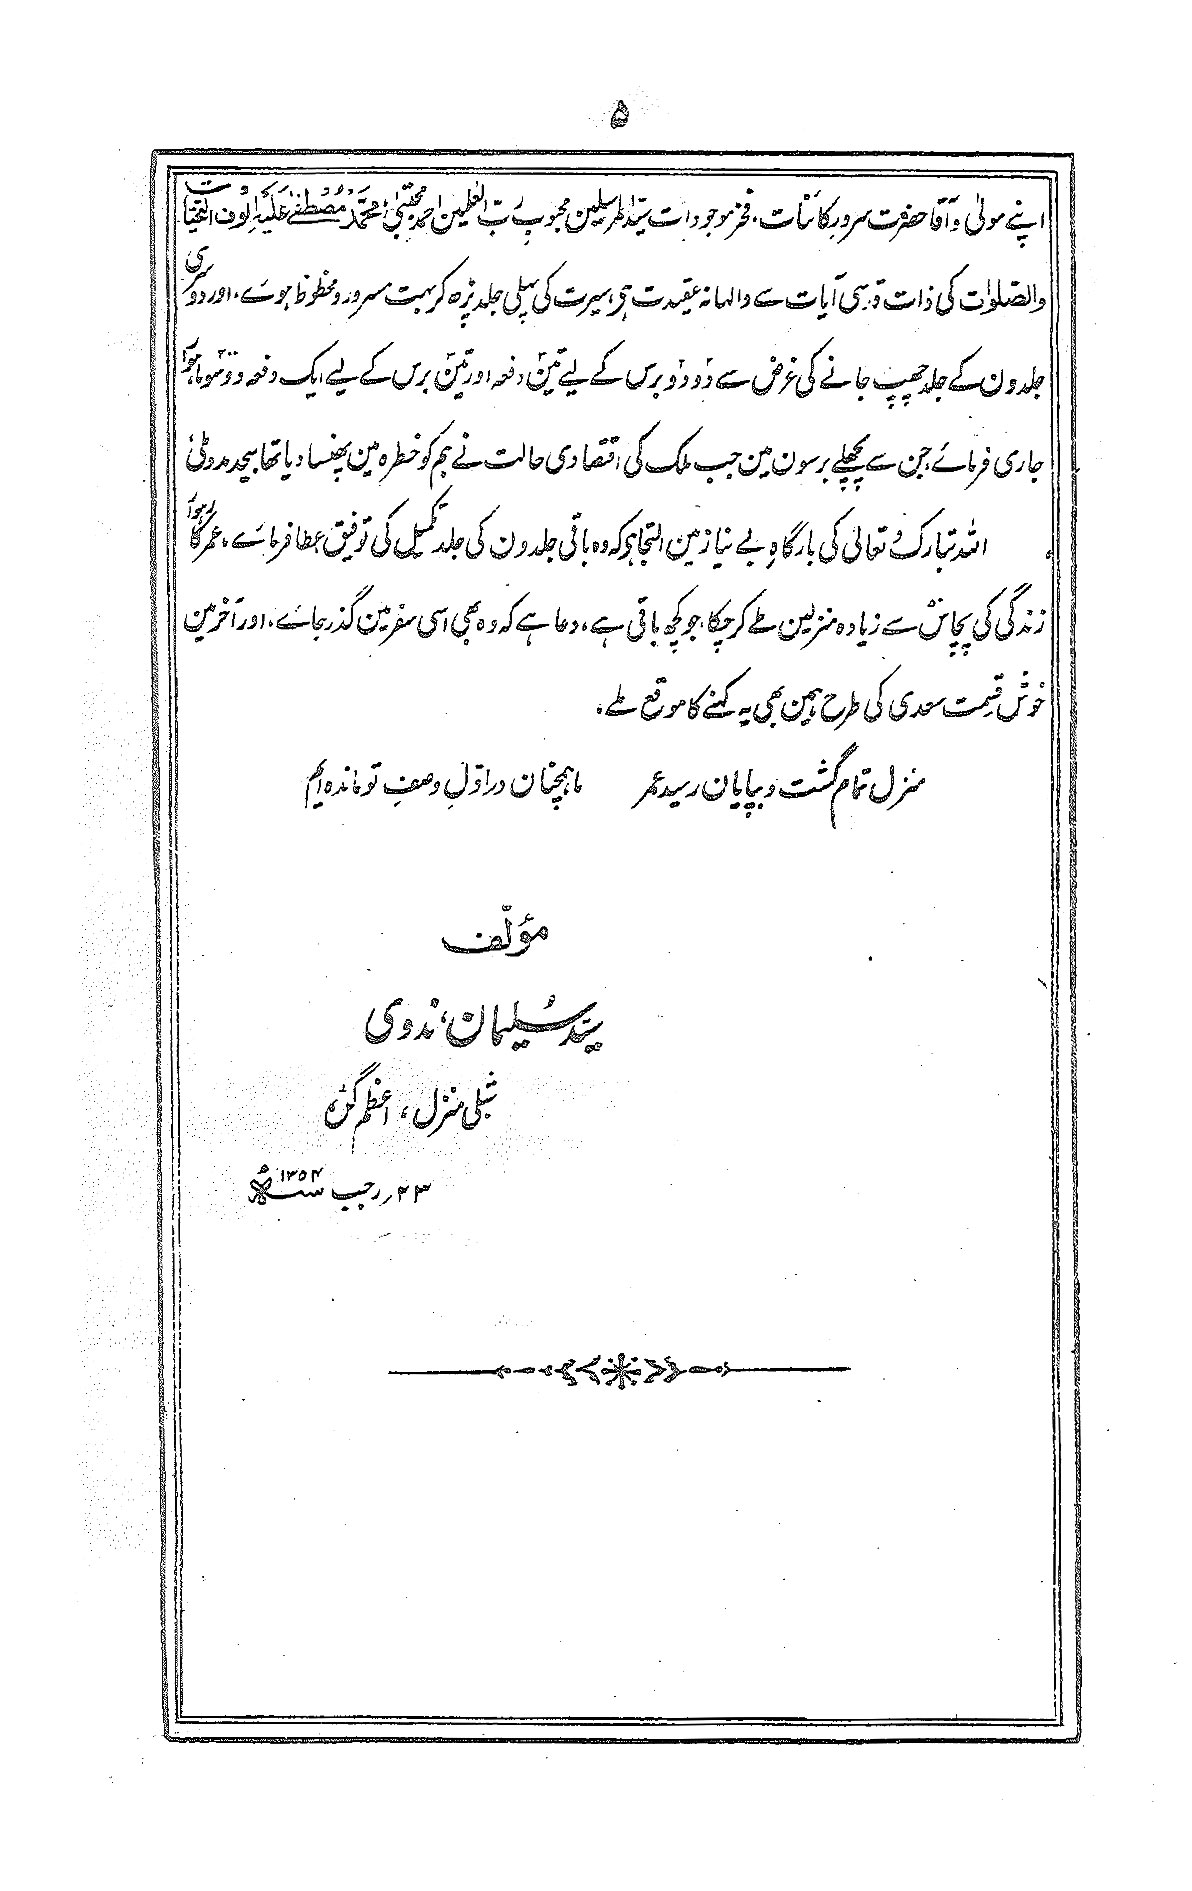 ۵
اپنے مولیٰ و آقا حضرت سرورِ کائنات، فخرِ موجودات سیّد المرسلین محبوبِ ربّ العٰلمین احمد مجتبیٰ، محمّد مصطفےٰ علیہ الوف التحیات
والصّلوٰت کی ذات قدسی آیات سے والہانہ عقیدت ہی، سیرت کی پہلی جلد پڑھ کر بہت مسرور و محظوظ ہوے، اور دوسری
جلدون کے جلد چھپ جانے کی غرض سے دو دو برس کے لیے تین دفعہ اور تین برس کے لیے ایک دفعہ دو دو سو ماہوار
جاری فرمائے، جن سے پچھلے برسون مین جب ملک کی اقتصادی حالت نے ہم کو خطرہ مین پھنسا دیا تھا بیحد مدد ملی
اللہ تبارک و تعالیٰ کی بارگاہِ بے نیاز مین التجا ہی کہ وہ باقی جلدون کی جلد تکمیل کی توفیق عطا فرمائے، عمر کا رہوار
زندگی کی پچاس سے زیادہ منزلین طے کر چکا، جو کچھ باقی ہے، دعا ہے کہ وہ بھی اسی سفر مین گذر جائے، اور آخر مین
خوش قسمت سعدی کی طرح ہمین بھی یہ کہنے کا موقع ملے،
منزل تمام گشت و بپایان رسید عمر ما ہمچنان در اوّلِ وصفِ تو ماندہ ایم
مؤلّف
سیّد سُلیمان، ندوی
شبلی منزل، اعظم گڑہ
۲۳؍ رجب سنہ ۱۳۵۴ھ